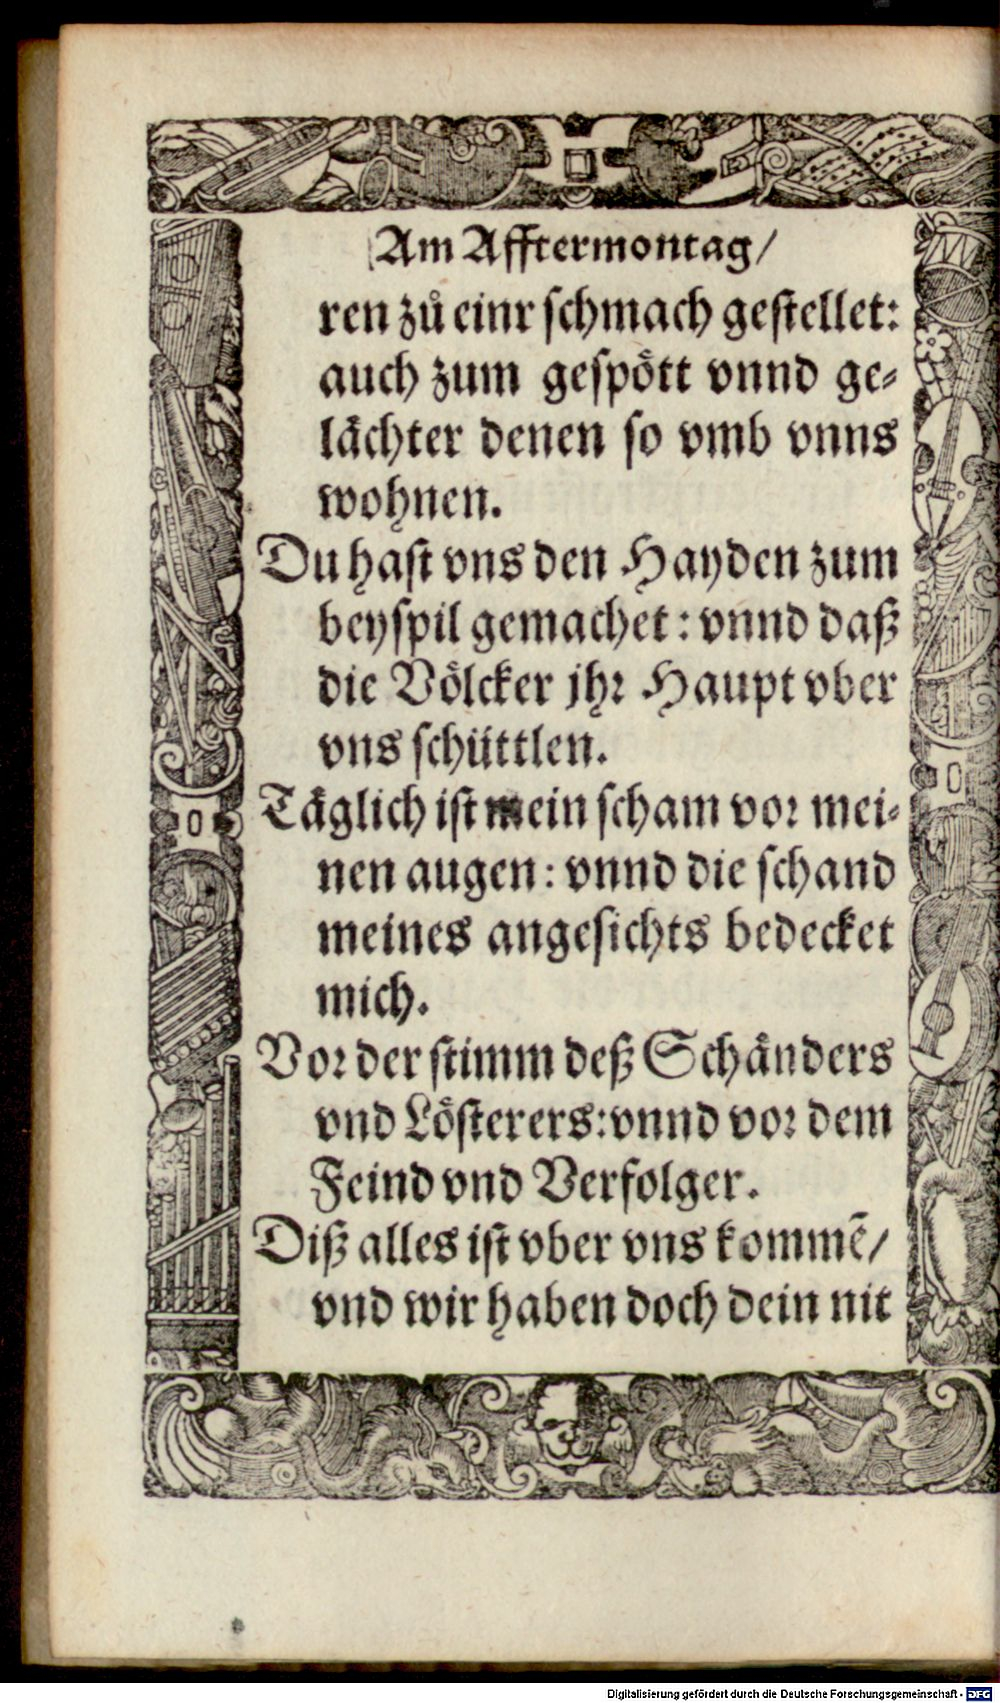 Am Afftermontag/
ren zů einr schmach gestellet:
auch zum gespött vnnd ge⸗
lächter denen so vmb vnns
wohnen.
Du hast vns den Hayden zum
beyspil gemachet: vnnd daß
die Völcker jhr Haupt vber
vns schüttlen.
Täglich ist mein scham vor mei⸗
nen augen: vnnd die schand
meines angesichts bedecket
mich.
Vor der stimm deß Schänders
vnd Lösterers: vnnd vor dem
Feind vnd Verfolger.
Diß alles ist vber vns kommē/
vnd wir haben doch dein nit
Digitalisierung gefördert durch die Deutsche Forschungsgemeinschaft - DFG